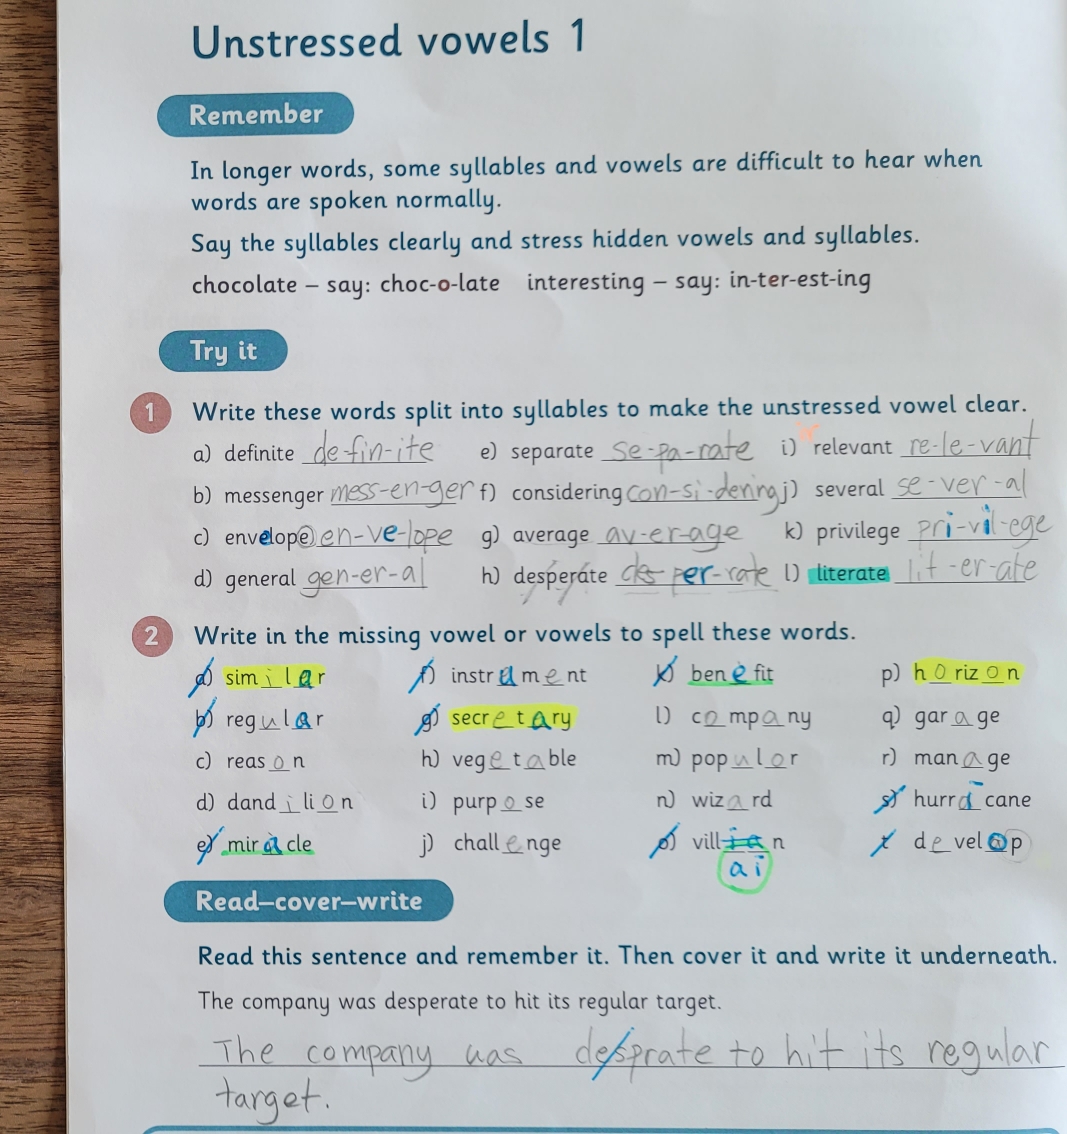 Unstressed vowels 1
Remember
In longer words, some syllables and vowels are difficult to hear when
words are spoken normally.
Say the syllables clearly and stress hidden vowels and syllables.
chocolate – say: choc-o-late interesting – say: in-ter-est-ing
Try it
1 Write these words split into syllables to make the unstressed vowel clear.
a) definite de-fin-ite e) separate se-pa-rate i) relevant re-le-vant
b) messenger mess-en-ger f) considering con-si-dering j) several se-ver-al
c) envelope en-ve-lope g) average av-er-age k) privilege pri-vil-ege
d) general gen-er-al h) desperate des per-rate l) literate lit-er-ate
2 Write in the missing vowel or vowels to spell these words.
a) similar f) instrument k) benefit p) horizon
b) regular g) secretary l) company q) garage
c) reason h) vegetable m) populor r) manage
d) dandilion i) purpose n) wizard s) hurracane
e) miracle j) challenge o) villian t) develop
ai
Read–cover–write
Read this sentence and remember it. Then cover it and write it underneath.
The company was desperate to hit its regular target.
The company was desprate to hit its regular
target.